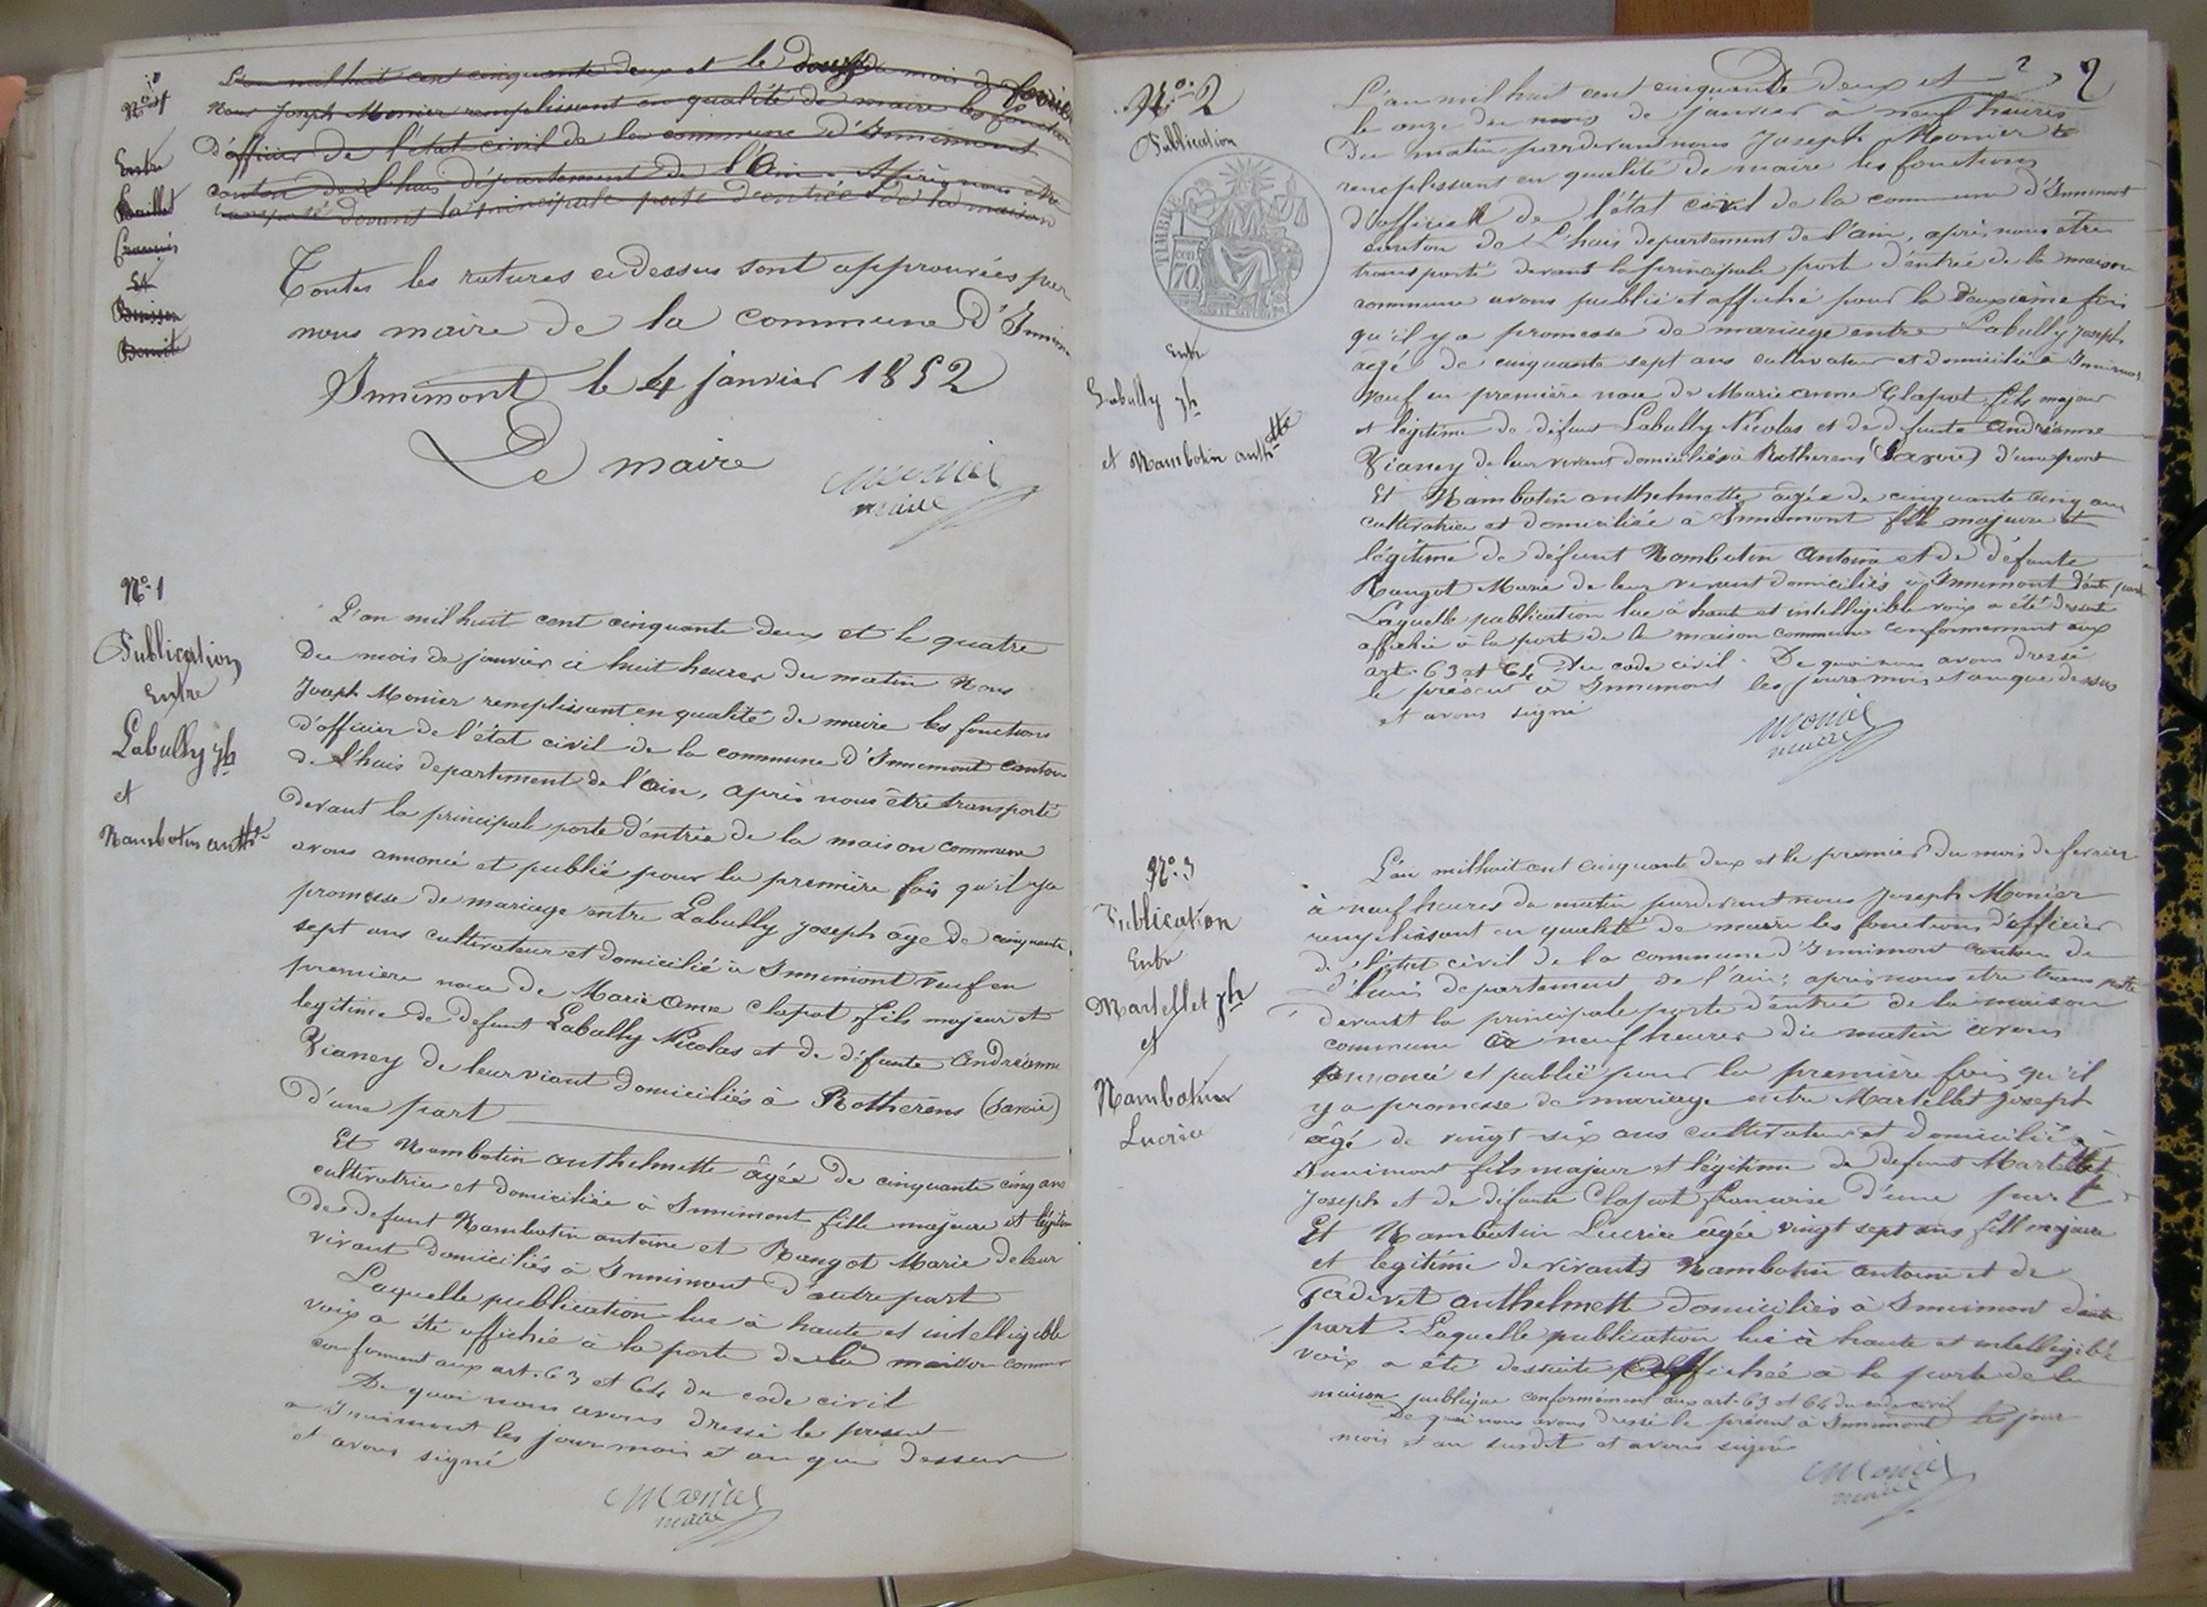 N° 1
Entre
Baillet
François
Et
Buisson
Benoit
L'an mil huit cent cinquante deux et le douze du mois de février
Nous Joseph Monier remplissant en qualité de maire les fonctions
d'officier de l'état civil de la commune d'Innimont
canton de Lhuis département de l'Ain. Après nous être
transporté devant la principale porte d'entrée de la maison
Toutes les ratures ci dessus sont approuvées par
nous maire de la commune d'Innim
Innimont le 4 janvier 1852
Le maire
Monier
maire
N° 1
Publication
Entre
Labully jh
et
Nambotin antte
L'an mil huit cent cinquante deux et le quatre
du mois de janvier à huit heures du matin Nous
Joseph Monier remplissant en qualité de maire les fonctions
d'officier de l'état civil de la commune d'Innimont canton
de Lhuis departement de l'ain, après nous être transporté
devant la principale porte d'entrée de la maison commune
avons annoncé et publié pour la première fois qu'il y a
promesse de mariage entre Labully joseph âgé de cinquante
sept ans cultivateur et domicilié à Innimont veuf en
premiere noce de Marie Anne Clapot fils majeur et
legitime de defunt Labully Nicolas et de défunte Andréanne
Vianey de leur viant domiciliés à Rotherens (Savoie)
d'une part
Et Nambotin anthelmette âgée de cinquante cinq ans
cultivatrice et domiciliée à Innimont fille majeure et légitim
de defunt Nambotin antoine et Rangot Marie de leur
vivant domiciliés à Innimont d'autre part
Laquelle publication lue à haute et intelligible
voix a été affichée à la porte de la maison commun
conforment aux art. 63 et 64 du code civil
De quoi nous avons dressé le present
a Innimont les jour mois et an que dessus
et avons signé
Monier
maire
2
N° 2
Publication
TIMBRE
70
Entre
Labully jh
et Nambotin anthtte
L'an mil huit cent cinquante deux et
le onze du mois de janvier à neuf heures
du matin pardevant nous Joseph Monier
remplissant en qualité de maire les fonctions
d'officier de l'état civil de la commune d'Innimont
canton de Lhuis departement de l'ain, après nous etre
transporté devant la principale porte d'entrée de la maison
commune avons publié et affiché pour la deuxième fois
qu'il y a promesse de mariage entre Labully Joseph
agé de cinquante sept ans cultivateur et domicilié à Innimont
veuf en première noce de Marie anne Clapot fils majeur
et légitime de défunt Labully Nicolas et de défunte Andréanne
Vianey de leur vivant domiciliés à Rotherens (Savoie) d'une part
Et Nambotin anthelmette âgée de cinquante cinq ans
cultivatrice et domiciliée à Innimont fille majeure et
légitime de défunt Nambotin Antoine et de défunte
Rangot Marie de leur vivant domiciliés à Innimont d'autre part
Laquelle publication lue à haute et intelligible voix a été dessuite
affichée à la porte de la maison commune conformement aux
art. 63 et 64 du code civil. De quoi nous avons dressé
le présent à Innimont les jours mois et an que dessus
et avons signé
Monier
maire
N° 3
Publication
Entre
Martellet jh
et
Nambotin
Lucrèce
L'an mil huit cent cinquante deux et le premier du mois de fevrier
à neuf heures du matin pardevant nous Joseph Monier
remplissant en qualité de maire les fonctions d'officier
de l'état civil de la commune d'Innimont canton de
d'huis departement de l'ain; après nous etre transporté
devant la principale porte d'entrée de la maison
commune à neuf heures du matin avons
annoncé et publié pour la première fois qu'il
y a promesse de mariage entre Martellet Joseph
âgé de vingt six ans cultivateur et domicilié à
Innimont fils majeur et légitime de defunt Martellet
Joseph et de défunte Clapot françoise d'une part
Et Nambotin Lucrèce âgée vingt sept ans fille majeure
et legitime de vivants Nambotin Antoine et de
anthelmette domiciliés à Innimont d'autre
part. Laquelle publication lue à haute et intelligible
voix a été dessuite affichée à la porte de la
maison publique conformément aux art. 63 et 64 du code civil
De quoi nous avons dressé le présent à Innimont les jour
mois et an susdit et avons signé
Monier
maire